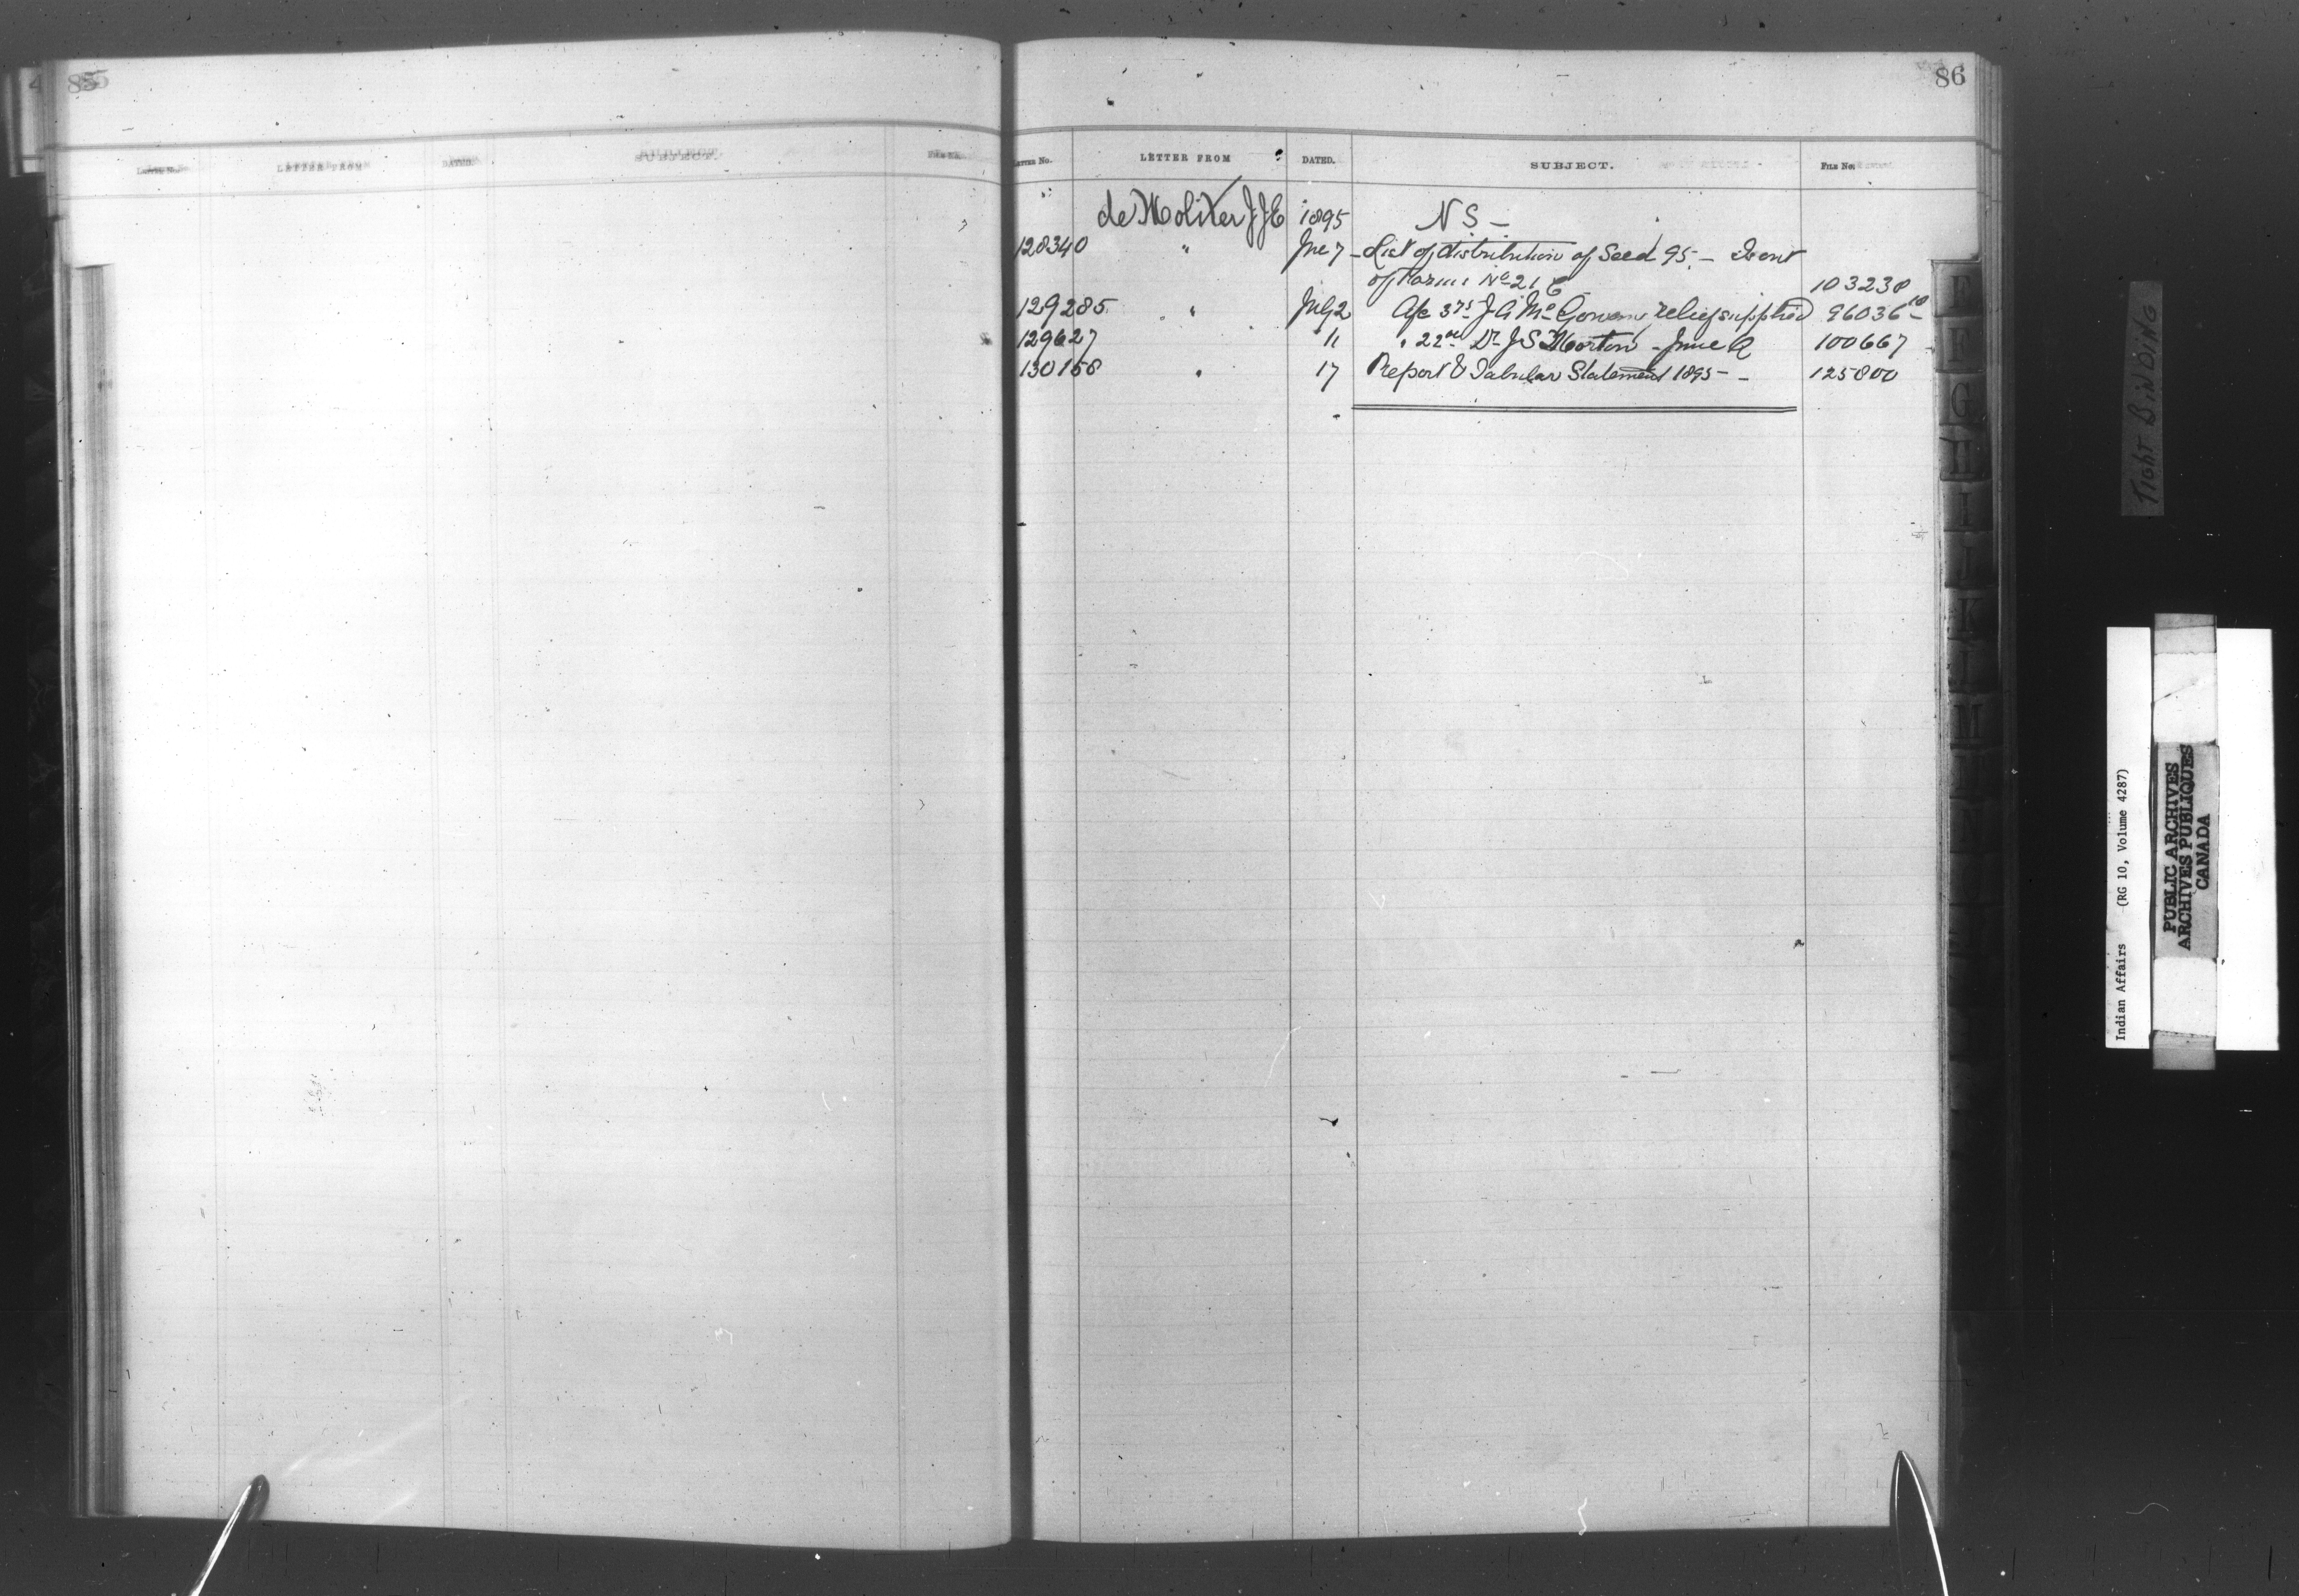 85
LETTER FROM
DATED.
SUBJECT.
86
LETTER No.
LETTER FROM
DATED.
SUBJECT.
FILE No.
de Moliter J J E 1895 N S —
128340 " Jne 7 — List of distribution of Seed 95. —
of Farms No 21 C 103238
129285 " July 2 A/c 3 75 J A McGowan relief supplied 96036 10
129627 11 " 22 00 Dr J S Morton - June Q 100667
130158 " 17 Report & Tabular Statement 1895 — 125800
E
F
G
H
I
J
K
M
N
Tight BiNDiNG
Indian Affairs (RG 10, Volume 4287)
PUBLIC ARCHIVES
ARCHIVES PUBLIQUES
CANADA